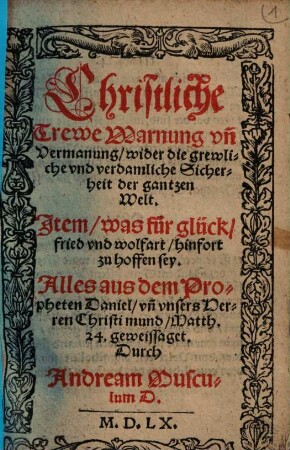 1
Christliche
Trewe Warnung vñ
Vermanung/wider die grewli-
che vnd verdamliche Sicher-
heit der gantzen
Welt.
Item/was für glück/
fried vnd wolfart/hinfort
zu hoffen sey.
Alles aus dem Pro-
pheten Daniel/vñ vnsers Her-
ren Christi mund/Matth.
24. geweissaget.
Durch
Andream Muscu-
lum D.
M. D. LX.